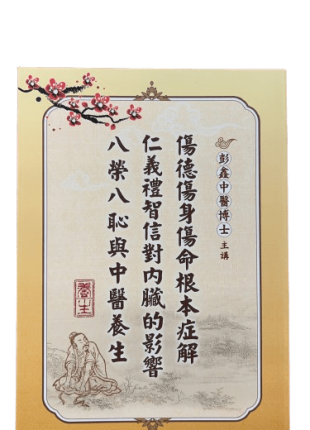 彭鑫中醫博士 主講
傷德傷身傷命根本症解
仁義禮智信對內臟的影響
八榮八恥與中醫養生
養生